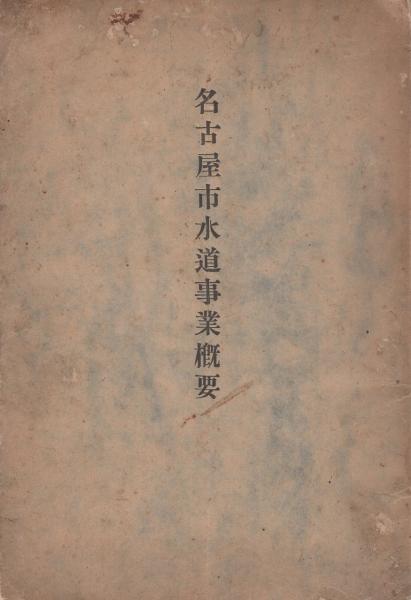 名古屋市水道事業概要